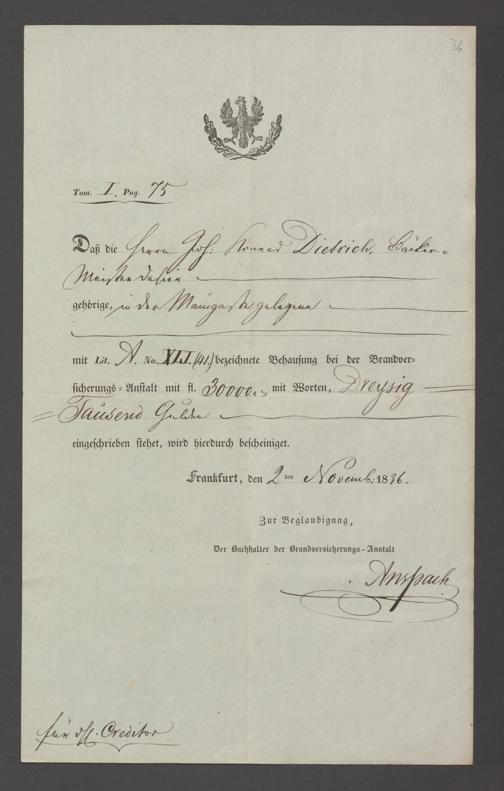 36
Tom. I. Pag. 75
Daß die Herrn Joh: Konrad Dietrich, Bäcker-
Meister dahier
gehörige, in der Maingasse gelegene
mit Lit. A. No. XLI (41.) bezeichnete Behausung bei der Brandver-
sicherungs-Anstalt mit fl. 30000.- mit Worten, Dreysig
Tausend Gulden
eingeschrieben stehet, wird hierdurch bescheiniget.
Frankfurt, den 2ten Novemb. 1836.
Zur Beglaubigung,
Der Buchhalter der Brandversicherungs-Anstalt
Anspach
für Creditor